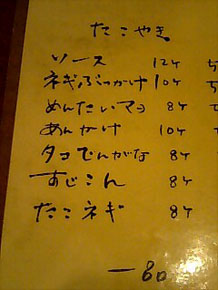 たこやき
ソース 12ケ
ネギぶっかけ 10ケ
めんたいマヨ 8ケ
あんかけ 10ケ
タコでんがな 8ケ
すじこん 8ケ
たこネギ 8ケ
一品